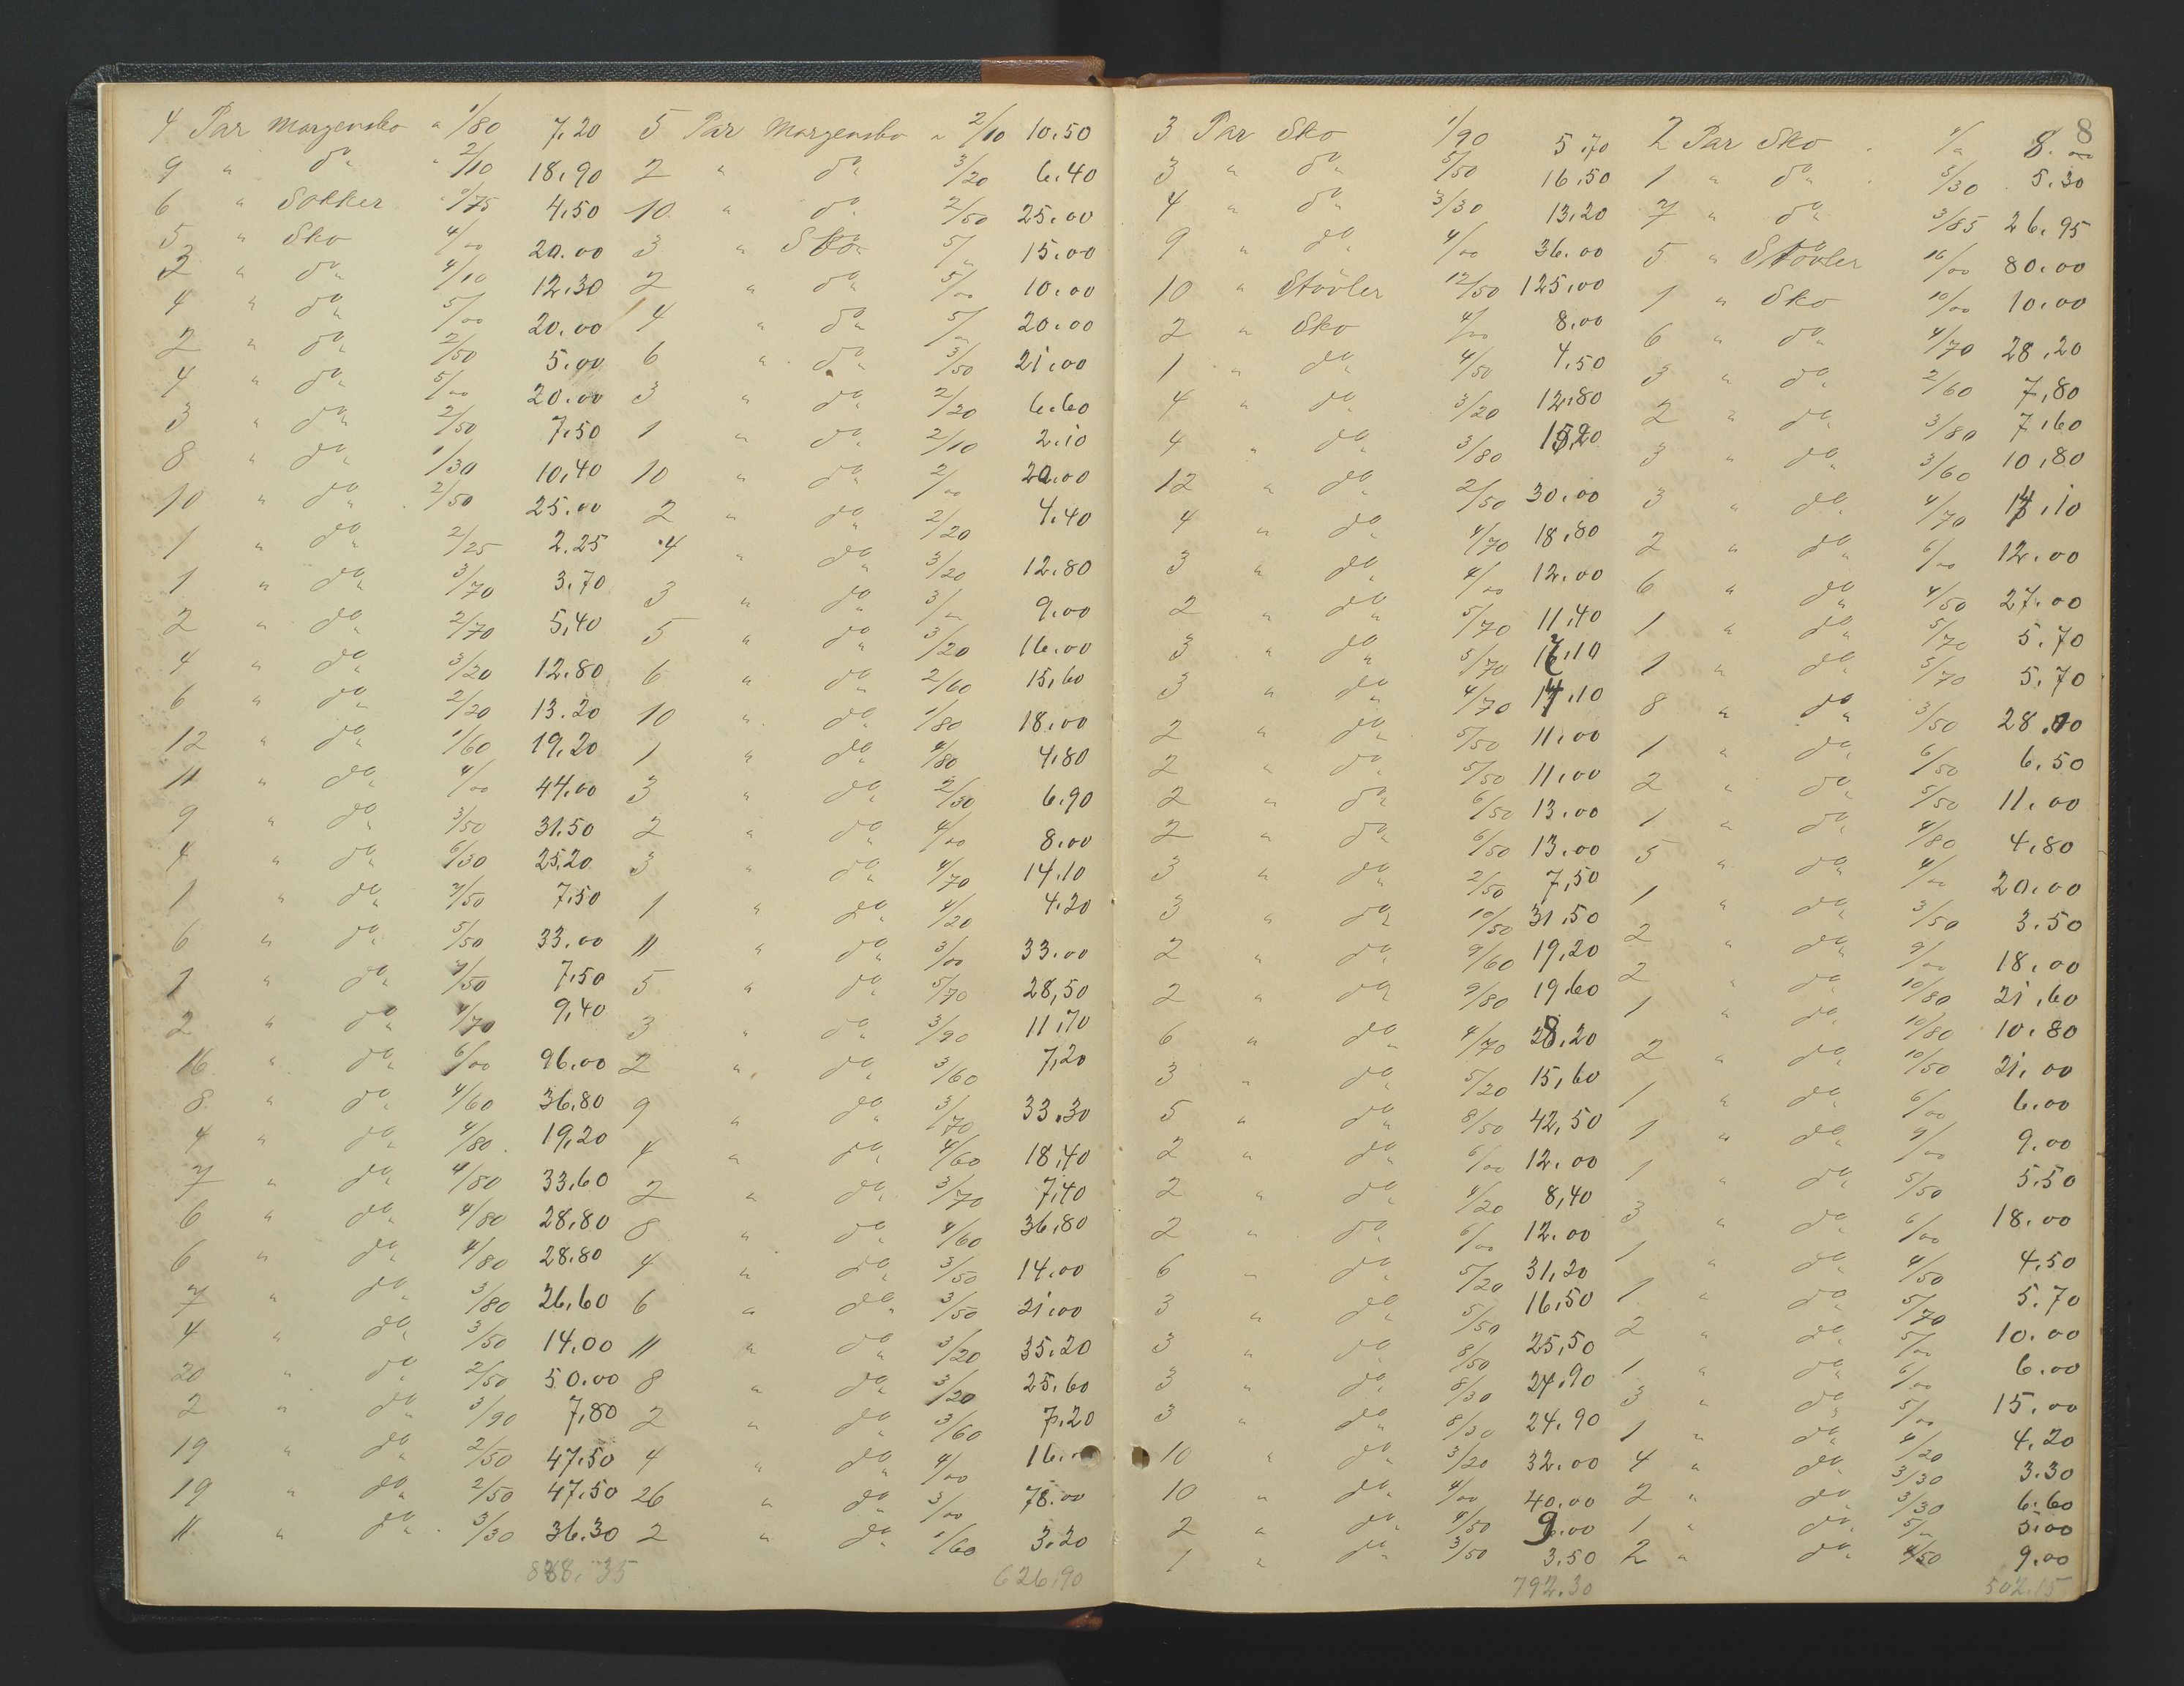 4 Par Morgensko a 1/80 7,20
9 " do " 2/10 18,90
6 " Sokker " "/75 4,50
5 " Sko 4/00 20.00
3 " do 4/10 12.30
4 " do 5/00 20.00
2 " do 2/50 5.00
4 " do 5/00 20.00
3 " do 2/50 7.50
8 " do 1/30 10,40
10 " do 2/50 25.00
1 " do 2/25 2.25
1 " do 3/70 3.70
2 " do 2/70 5,40
4 " do 3/20 12.80
6 " do 2/20 13.20
12 " do 1/60 19,20
11 " do 4/00 44.00
9 " do 3/50 31.50
4 " do 6/30 25,20
1 " do 7/50 7.50
6 " do 5/50 33.00
1 " do 7/50 7.50
2 " do 4/70 9,40
16 " do 6/00 96.00
8 " do 4/60 36.80
4 " do 4/80 19,20
7 " do 4/80 33,60
6 " do 4/80 28,80
6 " do 4/80 28.80
7 " do 3/80 26,60
4 " do 3/50 14.00
20 " do 2/50 50.00
2 " do 3/90 7,80
19 " do 2/50 47.50
19 " do 2/50 47.50
11 " do 3/30 36.30
888.35
5 Par Morgensko a 2/10 10.50
2 " do 3/20 6.40
10 " do 2/50 25.00
3 " Sko 5/" 15.00
2 " do 5/00 10.00
4 " do 5/" 20.00
6 " do 3/50 21.00
3 " do 2/20 6.60
1 " do 2/10 2.10
10 " do 2/00 20.00
2 " do 2/20 4.40
4 " do 3/20 12.80
3 " do 3/" 9.00
5 " do 3/20 16.00
6 " do 2/60 15,60
10 " do 1/80 18.00
1 " do 4/80 4.80
3 " do 2/30 6.90
2 " do 4/00 8.00
3 " do 4/70 14.10
1 " do 4/20 4.20
11 " do 3/00 33.00
5 " do 5/70 28,50
3 " do 3/90 11,70
2 " do 3/60 7,20
9 " do 3/70 33.30
4 " do 4/60 18,40
2 " do 3/70 7,40
8 " do 4/60 36,80
4 " do 3/50 14.00
6 " do 3/50 21.00
11 " do 3/20 35.20
8 " do 3/20 25.60
2 " do 3/60 7.20
4 " do 4/00 16.
26 " do 3/00 78.00
2 " do 1/60 3.20
626.90
8
3 Par Sko 1/90 5.70
3 " do 5/50 16,50
4 " do 3/30 13,20
9 " do 4/00 36.00
10 " Stövler 12/50 125.00
2 " Sko 4/00 8.00
1 " do 4/50 4.50
4 " do 3/20 12.80
4 " do 3/80 15,20
12 " do 2/50 30.00
4 " do 4/70 18.80
3 " do 4/00 12.00
2 " do 5/70 11,40
3 " do 5/70 17.10
3 " do 4/70 14.10
2 " do 5/50 11.00
2 " do 5/50 11.00
2 " do 6/50 13.00
2 " do 6/50 13.00
3 " do 2/50 7,50
3 " do 10/50 31.50
2 " do 9/60 19,20
2 " do 9/80 19.60
6 " do 4/70 28.20
3 " do 5/20 15,60
5 " do 8/50 42,50
2 " do 6/00 12.00
2 " do 4/20 8,40
2 " do 6/00 12.00
6 " do 5/20 31,20
3 " do 5/50 16,50
3 " do 8/50 25,50
3 " do 8/30 24.90
3 " do 8/30 24.90
10 " do 3/20 32.00
10 " do 4/00 40.00
2 " do 4/50 9.00
1 " do 3/50 3.50
792.30
2 Par Sko 4/" 8.00
1 " do 5/30 5.30
7 " do 3/85 26.95
5 " Stövler 16/00 80.00
1 " Sko 10/00 10.00
6 " do 4/70 28,20
3 " do 2/60 7,80
2 " do 3/80 7,60
3 " do 3/60 10,80
3 " do 4/70 14.10
2 " do 6/00 12.00
6 " do 4/50 27.00
1 " do 5/70 5.70
1 " do 5/70 5.70
8 " do 3/50 28.00
1 " do 6/50 6.50
2 " do 5/50 11.00
1 " do 4/80 4.80
5 " do 4/00 20.00
1 " do 3/50 3.50
2 " do 9/00 18.00
2 " do 10/80 21,60
1 " do 10/80 10.80
2 " do 10/50 21.00
1 " do 6/00 6.00
1 " do 9/00 9.00
1 " do 5/50 5.50
3 " do 6/00 18.00
1 " do 4/50 4.50
1 " do 5/70 5.70
2 " do 5/00 10.00
1 " do 6/00 6.00
3 " do 5/00 15.00
1 " do 4/20 4.20
4 " do 3/30 3.30
2 " do 3/30 6.60
1 " do 5/" 5.00
2 " do 4/50 9.00
502.15